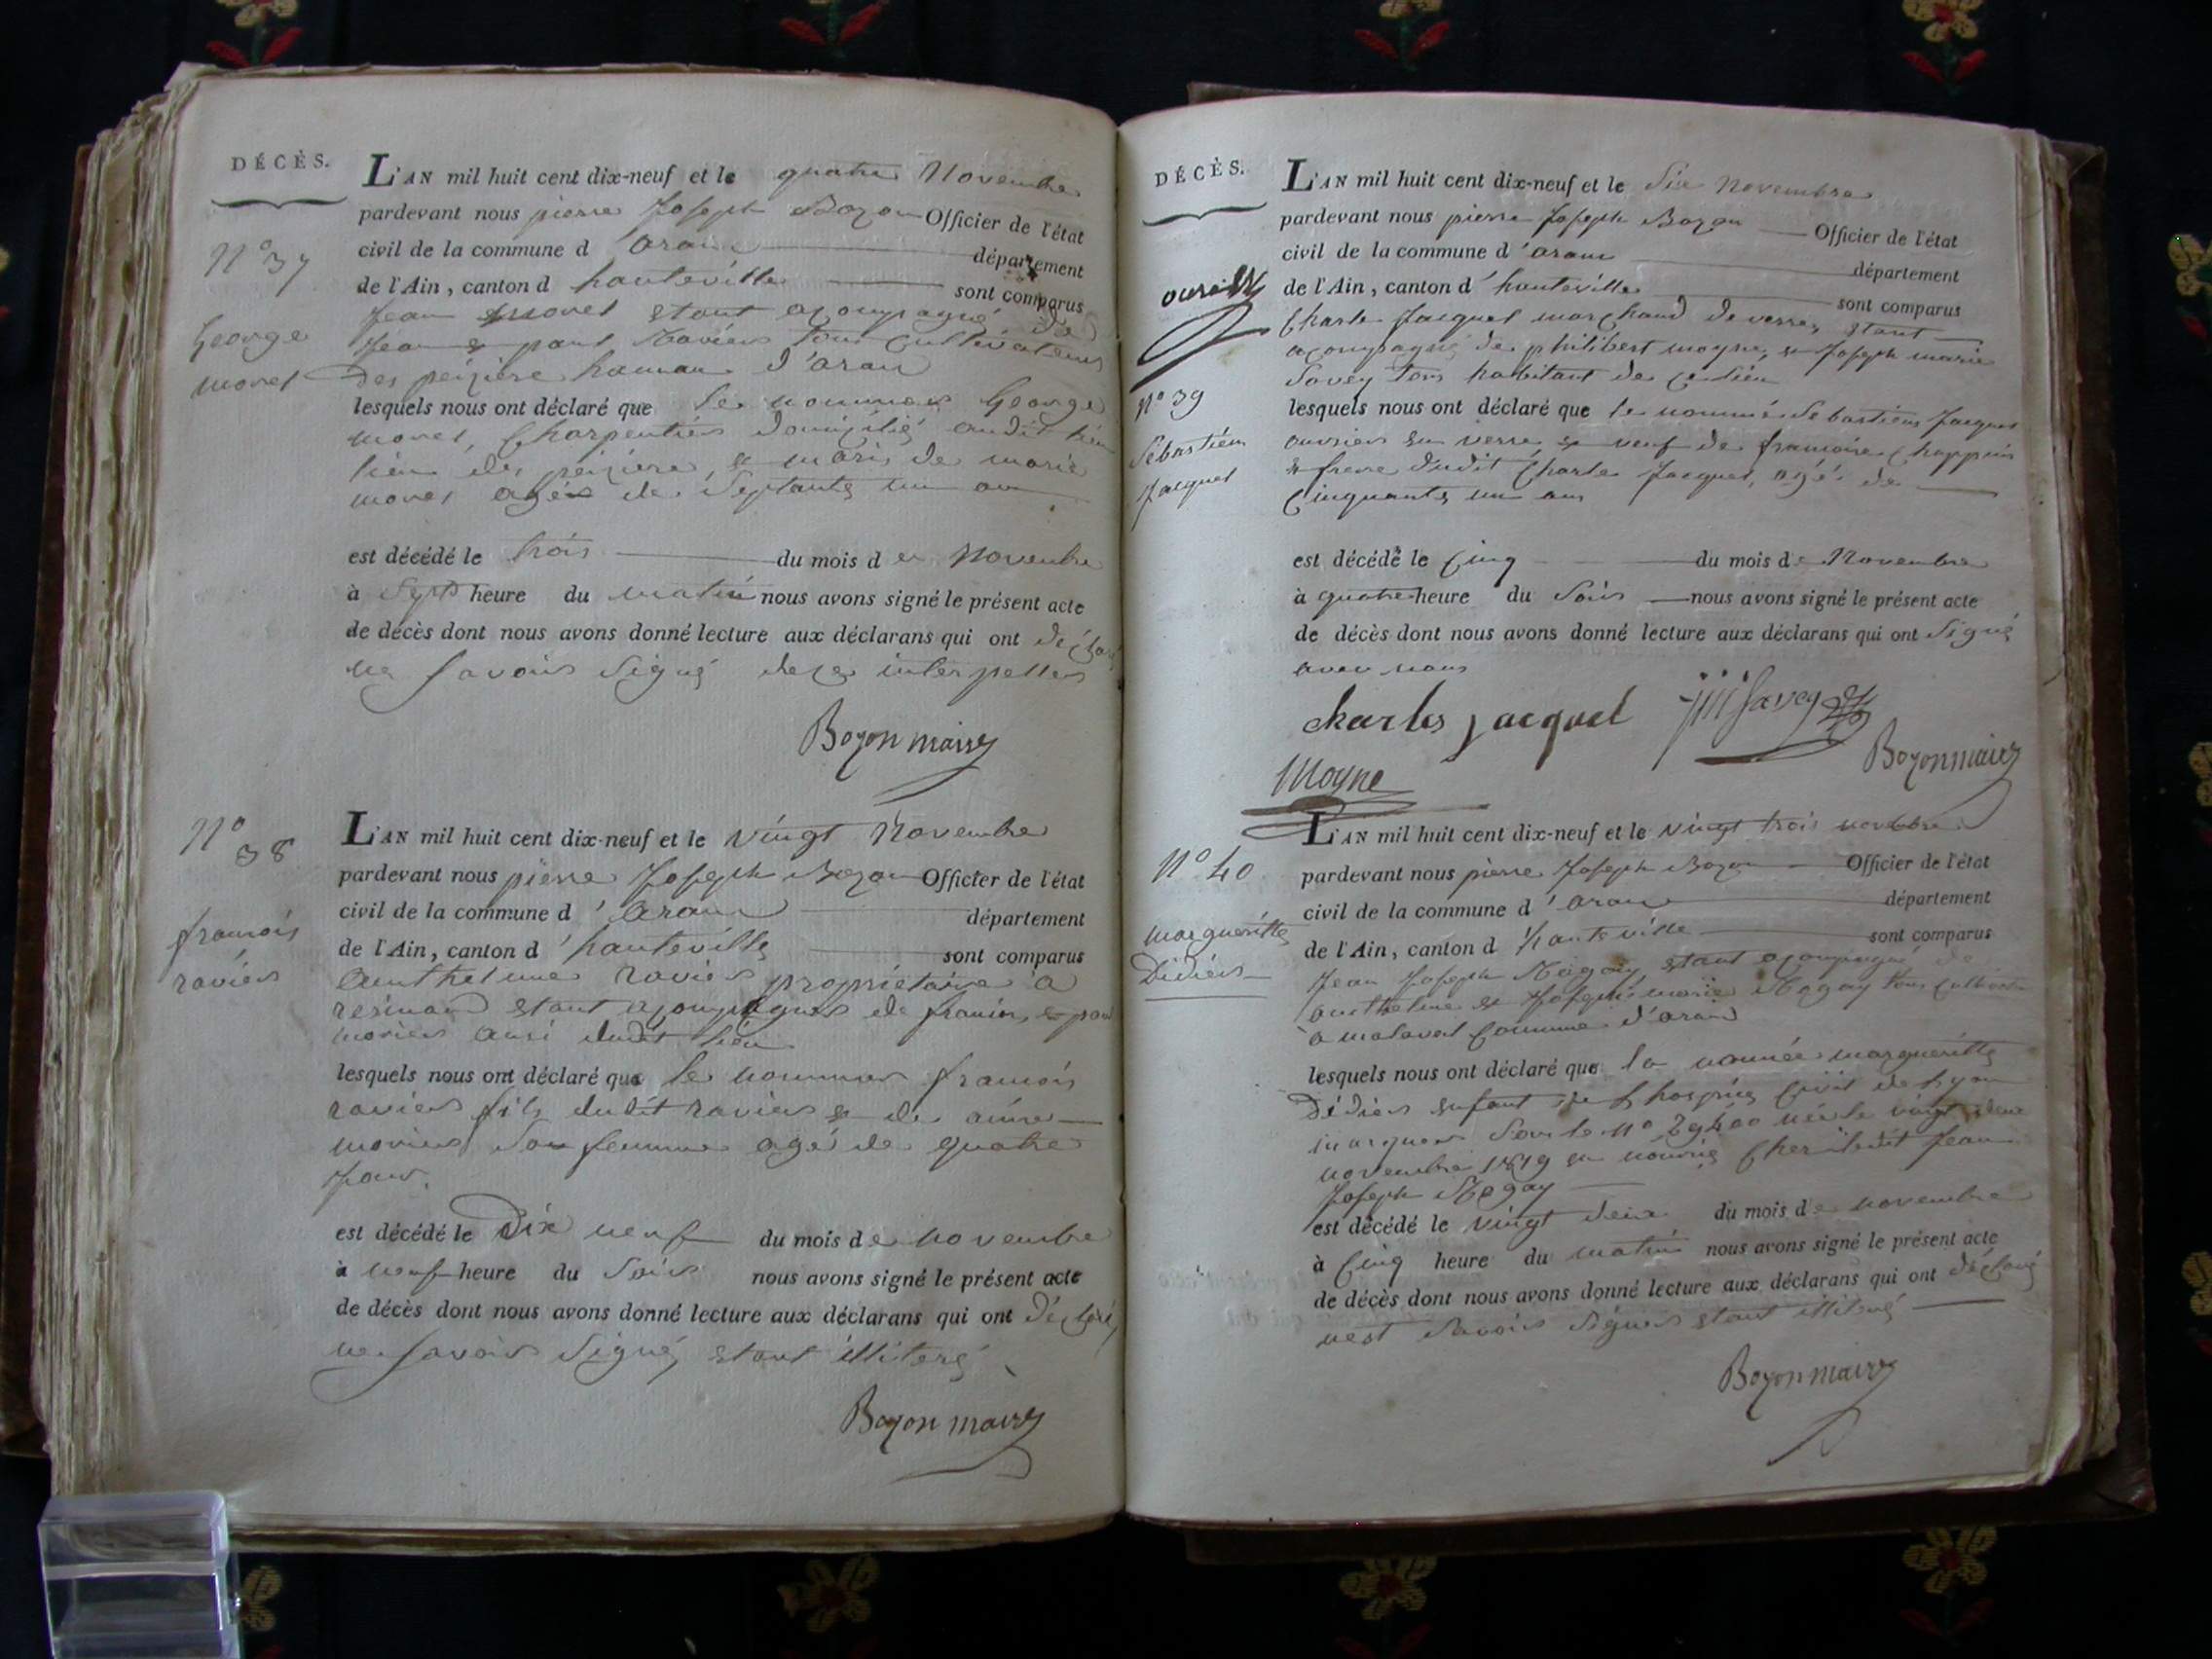 DÉCÈS.
L'AN mil huit cent dix-neuf et le quatre Novembre
pardevant nous pierre Joseph Bozon Officier de l'état
civil de la commune d'aran département
N° 37
de l'Ain, canton d hauteville sont comparus
Jean moret etant acompagné de
George
Jean & paul Raviér tous cultivateurs
moret
Des peiziere hamau d'aran
lesquels nous ont déclaré que le nommer George
moret, Charpentier domicilié audit lieu
lieu des peiziere, & maris de marie
moret agée de Septante un an
est décédé le trois du mois de Novembre
à Sept heure du matin nous avons signé le présent acte
de décès dont nous avons donné lecture aux déclarans qui ont déclaré
ne savoir signé dece interpeller
Bozon maire
N° 38
L'AN mil huit cent dix-neuf et le vingt Novembre
pardevant nous pierre Joseph Bozon Officier de l'état
civil de la commune d'aran département
francois
raviér
de l'Ain, canton d'hauteville sont comparus
Anthelme ravier propriétaire a
resinand etant acompagner de francois & paul
moriér ausi dudit lieu
lesquels nous ont déclaré que le nommer francois
ravier fils dudit ravier & de
morier son femme agé de quatre
jour.
est décédé le Dix neuf du mois de novembre
à neuf heure du Soir nous avons signé le présent acte
de décès dont nous avons donné lecture aux déclarans qui ont Déclaré,
ne savoir signé, etant illiteré
Bozon maire
DÉCÈS.
L'AN mil huit cent dix-neuf et le Six Novembre
pardevant nous pierre Joseph Bozon Officier de l'état
civil de la commune d'aran département
de l'Ain, canton d'hauteville sont comparus
Charle Jacquet marchand de verre, etant
acompagné de philibert moyne, & Joseph marie
Savey tous habitant de ce lieu
N° 39
Sébastién
Jacquet
lesquels nous ont déclaré que le nommé Sebastien Jacquet
ouvrier en verre & veuf de francoise chappuis
& frere dudit Charle Jacquet, agé de
Cinquante un ans
est décédé le Cinq du mois de Novembre
à quatre heure du Soir nous avons signé le présent acte
de décès dont nous avons donné lecture aux déclarans qui ont Signé
avec nous
charles jacquet Savey
Bozon maire
Moyne
L'AN mil huit cent dix-neuf et le vingt trois novembre
N° 40
pardevant nous pierre Joseph Bozon Officier de l'état
civil de la commune d'aran département
margueritte
Didiér
de l'Ain, canton d'hauteville sont comparus
Jean Joseph Mégay, etant acompagné de
anthelme & Joseph marie Mégay tous
a malaval commune d'aran
lesquels nous ont déclaré que la nomée margueritte
Didier enfant de l'hospice Civil de Lyon
marquer sous le N° 29400 née le vingt deux
novembre 1819 en nourrice Chez ledit Jean
Joseph Mégay
est décédé le vingt deux du mois de novembre
à Cinq heure du matin nous avons signé le présent acte
de décès dont nous avons donné lecture aux déclarans qui ont déclaré
savoir signer etant illiteré
Bozon maire